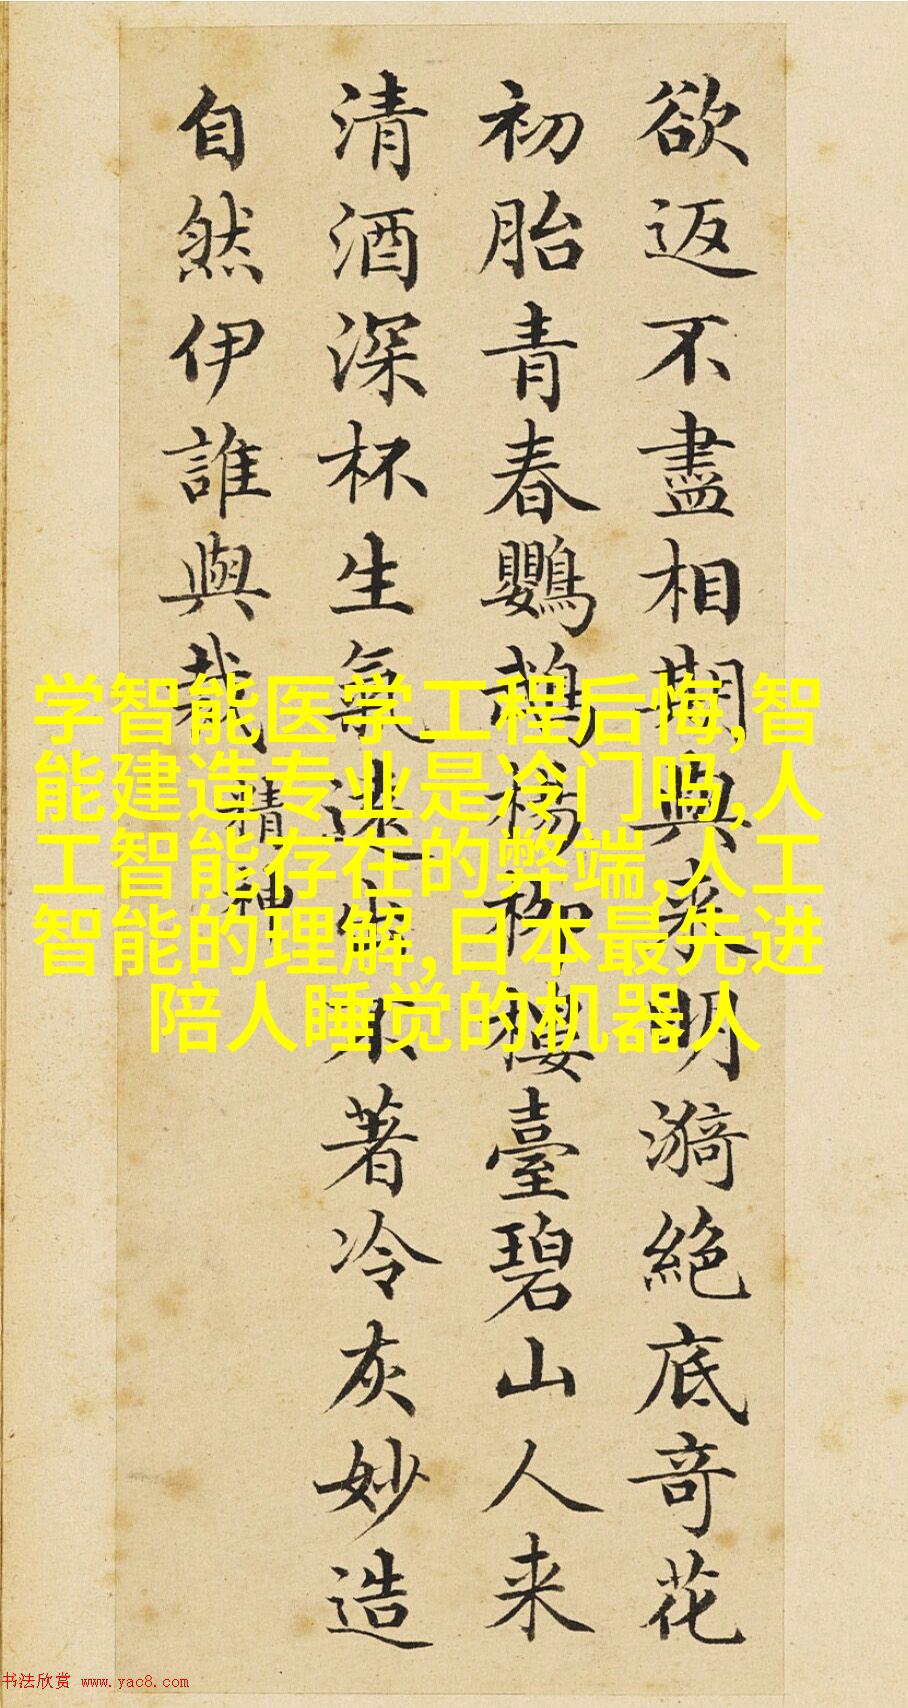 欲返不盡相期與來明漪絕底奇花
初胎青春鸚鵡楊柳樓臺碧山人来
清酒深杯生氣遠出不著冷灰妙造
自然伊誰與裁
精神
学智能医学工程后悔,智
能建造专业是冷门吗,人
工智能存在的弊端,人工
智能的理解,日本最先进
陪人睡觉的机器人
书法欣赏 www.yac8.com